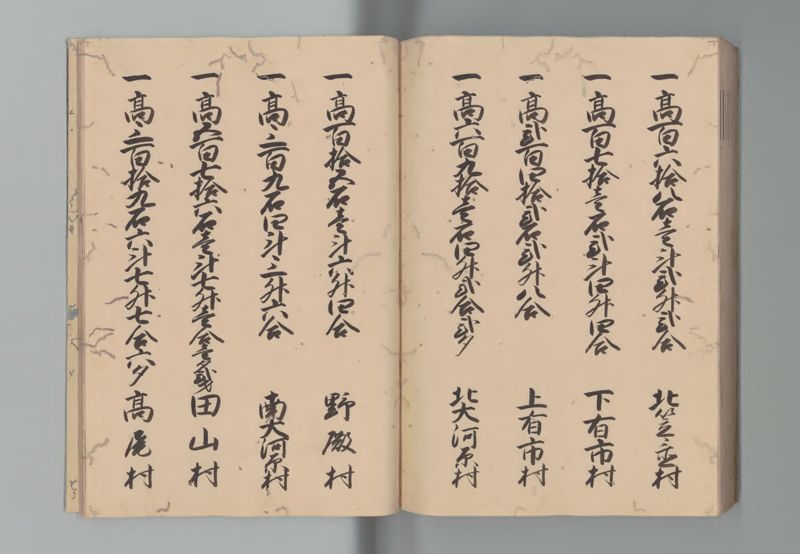 一高百六拾八石壱斗弐升弐合 北笠置村
一高百七拾壱石弐斗四升四合 下有市村
一高弐百四拾弐石弐升八合 上有市村
一高六百九拾壱石四升弐合弐夕 北大河原村
一高百拾五石壱斗六升四合 野殿村
一高三百九石四斗三升六合 南大河原村
一高五百七拾六石壱斗七升壱合壱弐 田山村
一高三百拾九石六斗七升七合六夕 高尾村